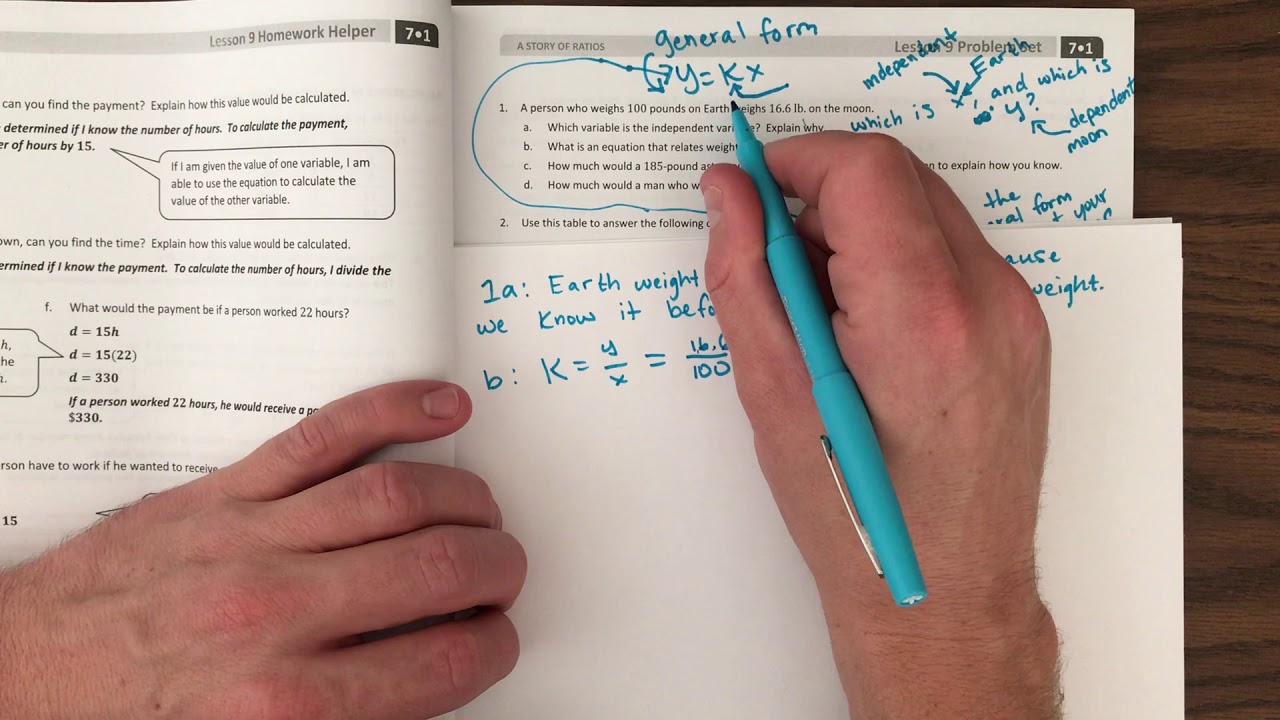 Lesson 9 Homework Helper 7•1
can you find the payment? Explain how this value would be calculated.
determined if I know the number of hours. To calculate the payment,
er of hours by 15.
If I am given the value of one variable, I am
able to use the equation to calculate the
value of the other variable.
own, can you find the time? Explain how this value would be calculated.
ermined if I know the payment. To calculate the number of hours, I divide the
f. What would the payment be if a person worked 22 hours?
d = 15h
d = 15(22)
d = 330
If a person worked 22 hours, he would receive a
$330.
h,
he
erson have to work if he wanted to receive
15
A STORY OF RATIOS
Lesson 9 Problem Set 7•1
general form
y = Kx
1. A person who weighs 100 pounds on Earth weighs 16.6 lb. on the moon.
a. Which variable is the independent variable? Explain why
b. What is an equation that relates weight
c. How much would a 185-pound
n to explain how you know.
d. How much would a man who
2. Use this table to answer the following
independent
Earth
which is x, and which is
y?
dependent
moon
the
form
your
1a: Earth weight
ause
we know it befo
weight.
b: K = y/x = 16.6/100